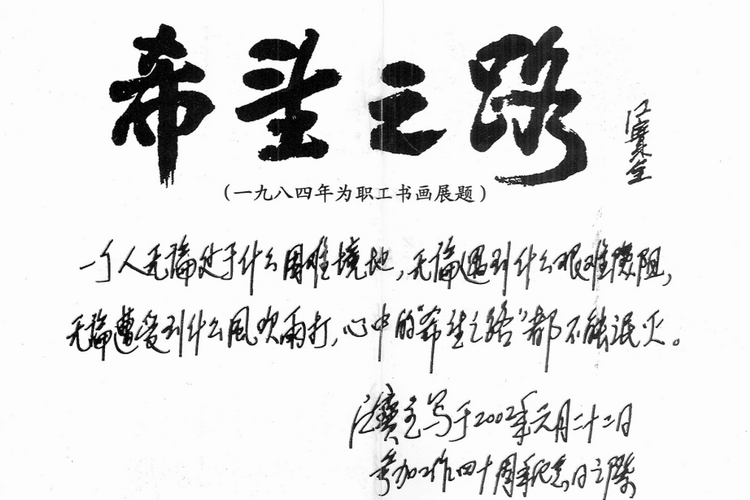 希望之路
(一九八四年为职工书画展题)
一个人无論处于什么困难境地,无論遇到什么艰难险阻,
无論遭受到什么風吹雨打,心中的“希望之路”都不能泯灭。
写于2002年元月二十二日
参加工作四十周年纪念日之際